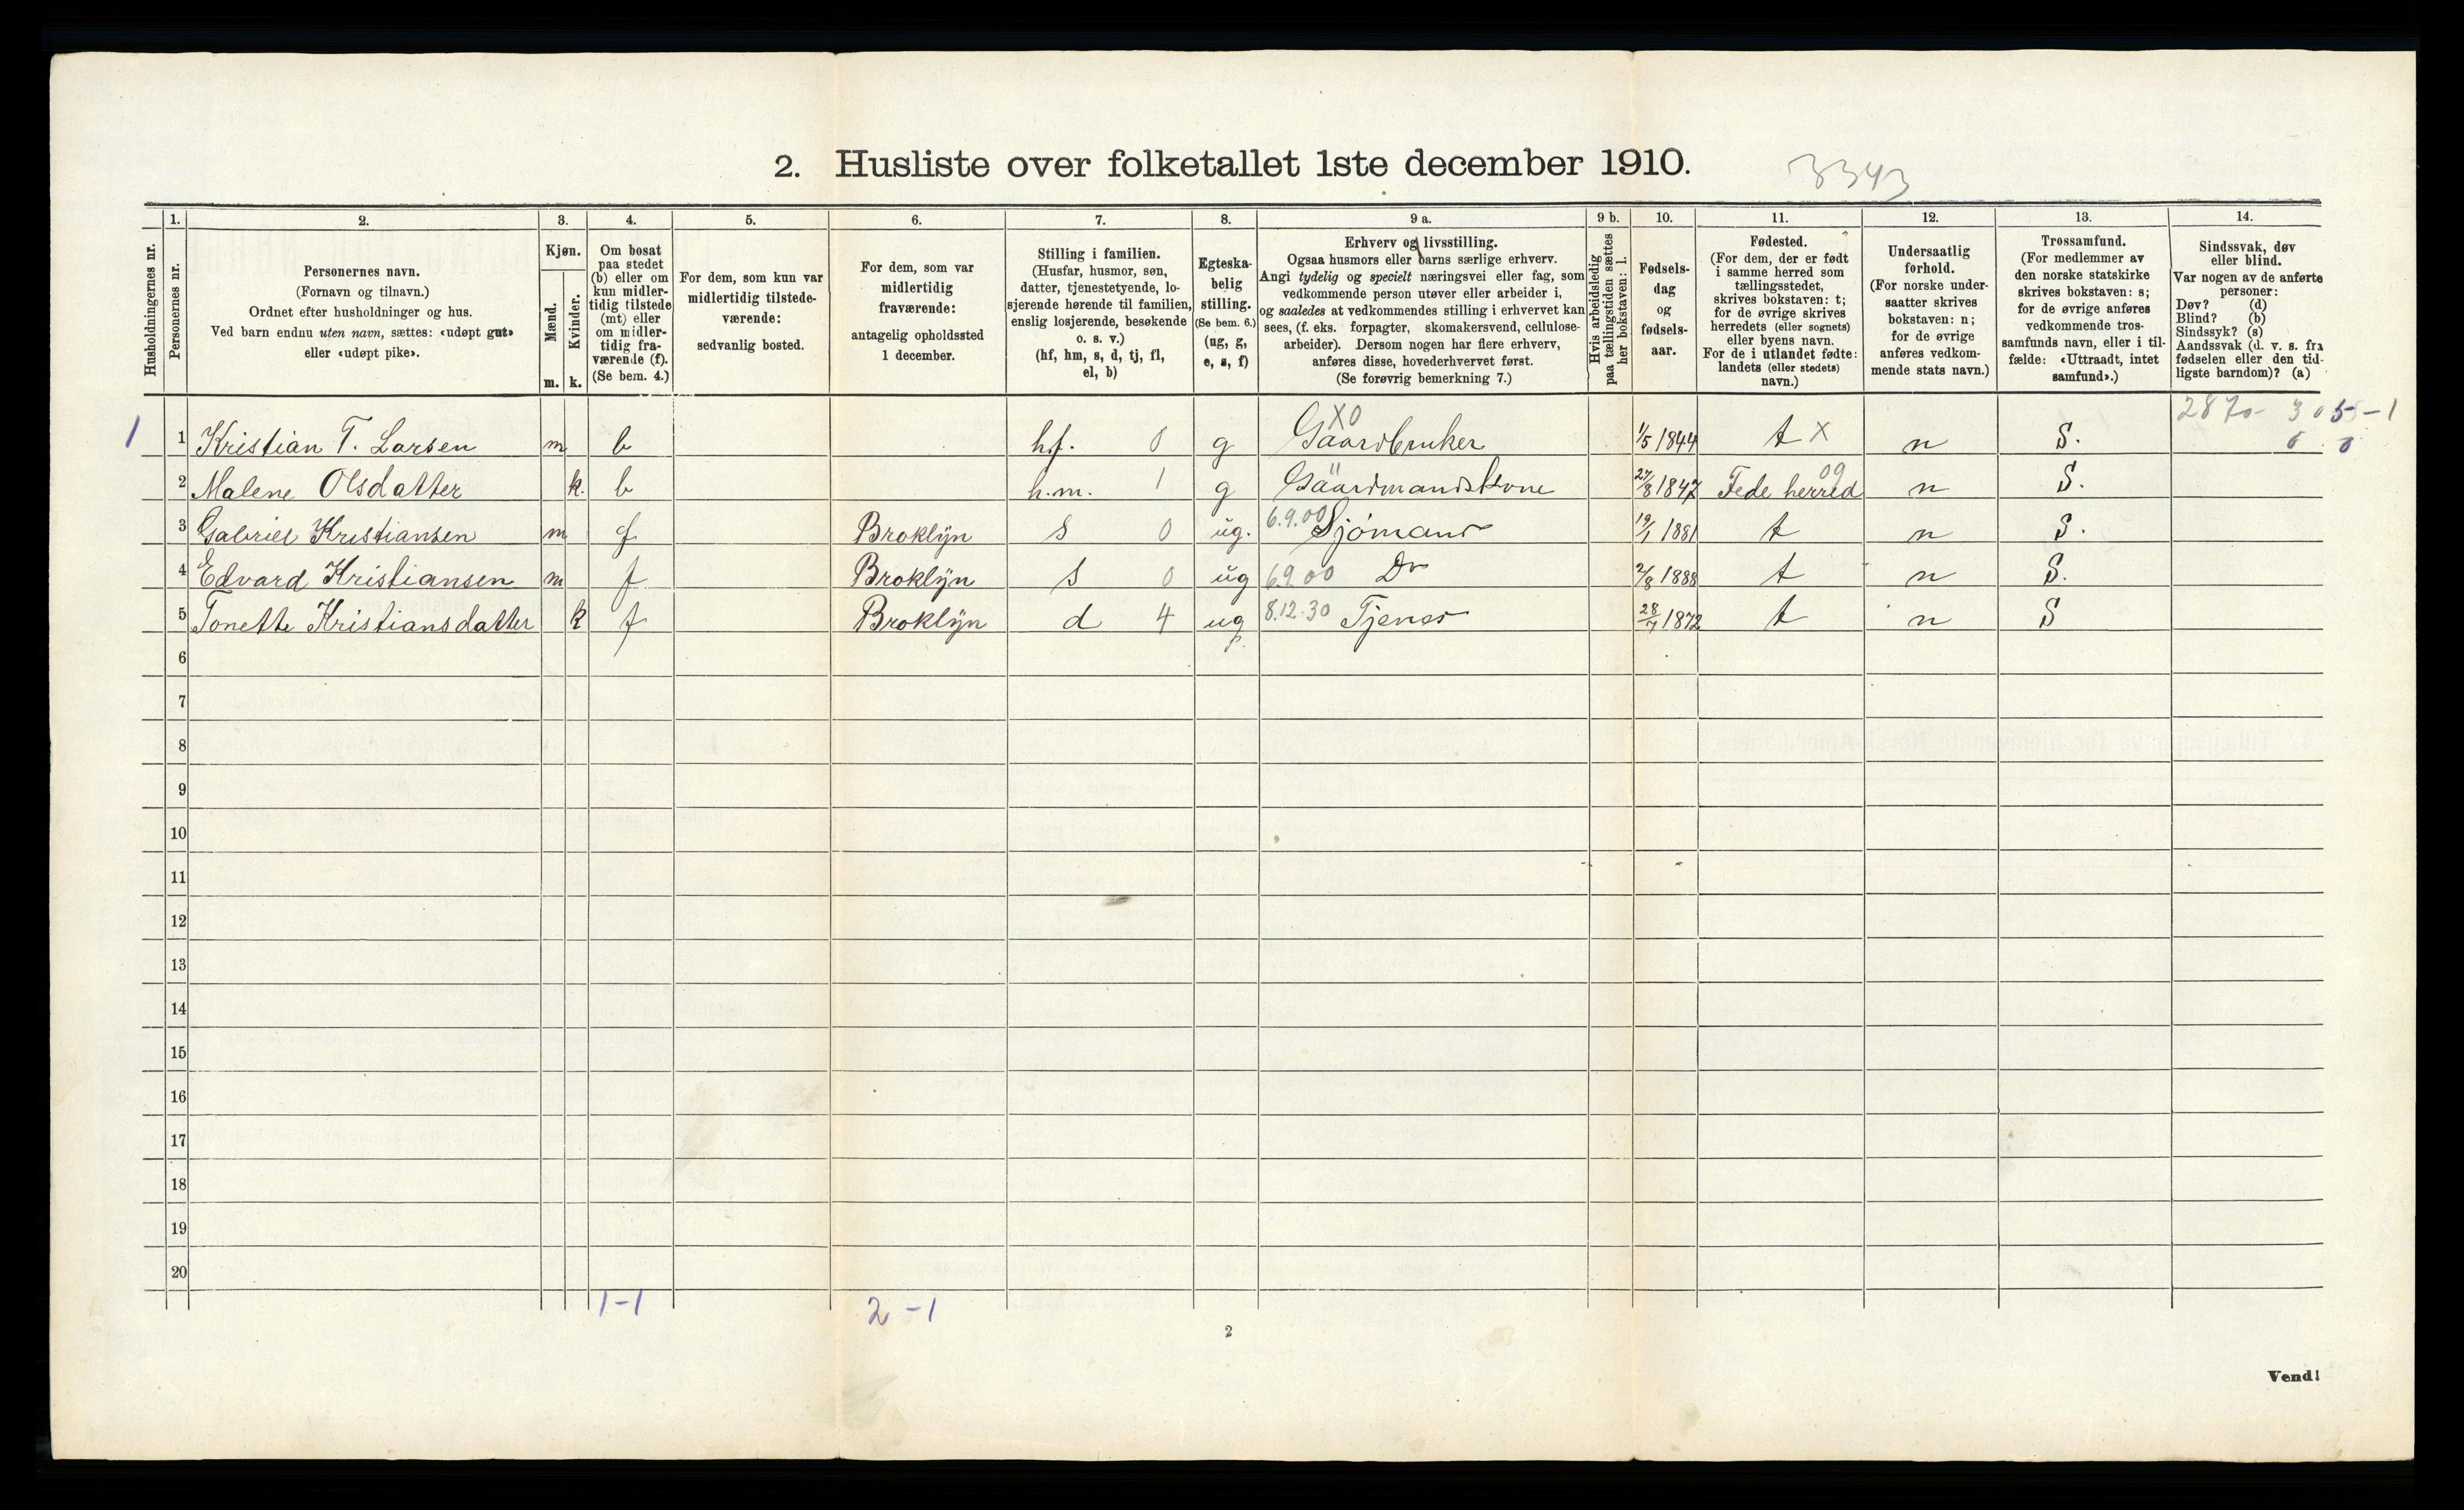 2. Husliste over folketallet 1ste december 1910.
3343
Husholdningernes nr.
1.
Personernes nr.
2.
Personernes navn.
(Fornavn og tilnavn.)
Ordnet efter husholdninger og hus.
Ved barn endnu uten navn, sættes: «udøpt gut»
eller «udøpt pike».
3.
Kjøn.
Mænd.
Kvinder.
m. k.
4.
Om bosat
paa stedet
(b) eller om
kun midler-
tidig tilstede
(mt) eller
om midler-
tidig fra-
værende (f).
(Se bem. 4.)
5.
For dem, som kun var
midlertidig tilstede-
værende:
sedvanlig bosted.
6.
For dem, som var
midlertidig
fraværende:
antagelig opholdssted
1 december.
7.
Stilling i familien.
(Husfar, husmor, søn,
datter, tjenestetyende, lo-
sjerende hørende til familien,
enslig losjerende, besøkende
o. s. v.)
(hf, hm, s, d, tj, fl,
el, b)
8.
Egteska-
belig
stilling.
(Se bem. 6.)
(ug, g,
e, s, f)
9 a.
Erhverv og livsstilling.
Ogsaa husmors eller barns særlige erhverv.
Angi tydelig og specielt næringsvei eller fag, som
vedkommende person utøver eller arbeider i,
og saaledes at vedkommendes stilling i erhvervet kan
sees, (f. eks. forpagter, skomakersvend, cellulose-
arbeider). Dersom nogen har flere erhverv,
anføres disse, hovederhvervet først.
(Se forøvrig bemerkning 7.)
9 b.
Hvis arbeidsledig
paa tællingstiden sættes
her bokstaven: l.
10.
Fødsels-
dag
og
fødsels-
aar.
11.
Fødested.
(For dem, der er født
i samme herred som
tællingsstedet,
skrives bokstaven: t;
for de øvrige skrives
herredets (eller sognets)
eller byens navn.
For de i utlandet fødte:
landets (eller stedets)
navn.)
12.
Undersaatlig
forhold.
(For norske under-
saatter skrives
bokstaven: n;
for de øvrige
anføres vedkom-
mende stats navn.)
13.
Trossamfund.
(For medlemmer av
den norske statskirke
skrives bokstaven: s;
for de øvrige anføres
vedkommende tros-
samfunds navn, eller i til-
fælde: «Uttraadt, intet
samfund».)
14.
Sindssvak, døv
eller blind.
Var nogen av de anførte
personer:
Døv? (d)
Blind? (b)
Sindssyk? (s)
Aandssvak (d. v. s. fra
fødselen eller den tid-
ligste barndom)? (a)
1 1 Kristian T. Larsen m b hf. 0 g X0 Gaardbruker 1/5 1844 t X n S. 2870- 305-1 0 0
2 Malene Olsdatter k. b h.m. 1 g Gaardmandskone 27/8 1847 Fede herred 09 n S.
3 Gabriel Kristiansen m f Broklyn s 0 ug. 6.9.00 Sjömand 19/1 1881 t n S.
4 Edvard Kristiansen m f Broklyn s 0 ug 6.9.00 Do 2/8 1888 t n S.
5 Tonette Kristiansdatter k f Broklyn d 4 ug 8.12.30 Tjener 28/7 1872 t n S
6
7
8
9
10
11
12
13
14
15
16
17
18
19
20
1-1 2-1
2
Vend!